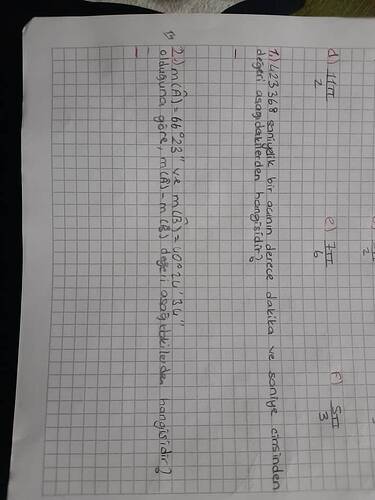 d) 11π/2 e) 7π/6 f) 5π/3
1.) 423368 saniyelik bir açının derece dakika ve saniye cinsinden
değeri aşağıdakilerden hangisidir?
2.) m(Â) = 66°23'' ve m(B̂) = 40°24'34''
olduğuna göre, m(Â) - m(B̂) değeri aşağıdakilerden hangisidir?